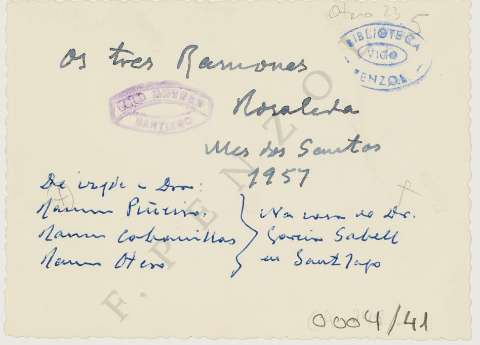 Otero 23 5
BIBLIOTECA
Vigo
PENZOL
Os tres Ramones
SANTIAGO
Rosaleda
Mes dos Santos
1957
De izqda a Dra:
Ramon Piñeiro.
Ramon Cabanillas
Ramon Otero
Na casa do Dr.
Garcia Sabell
en Santiago
F. PENZOL
0004/41